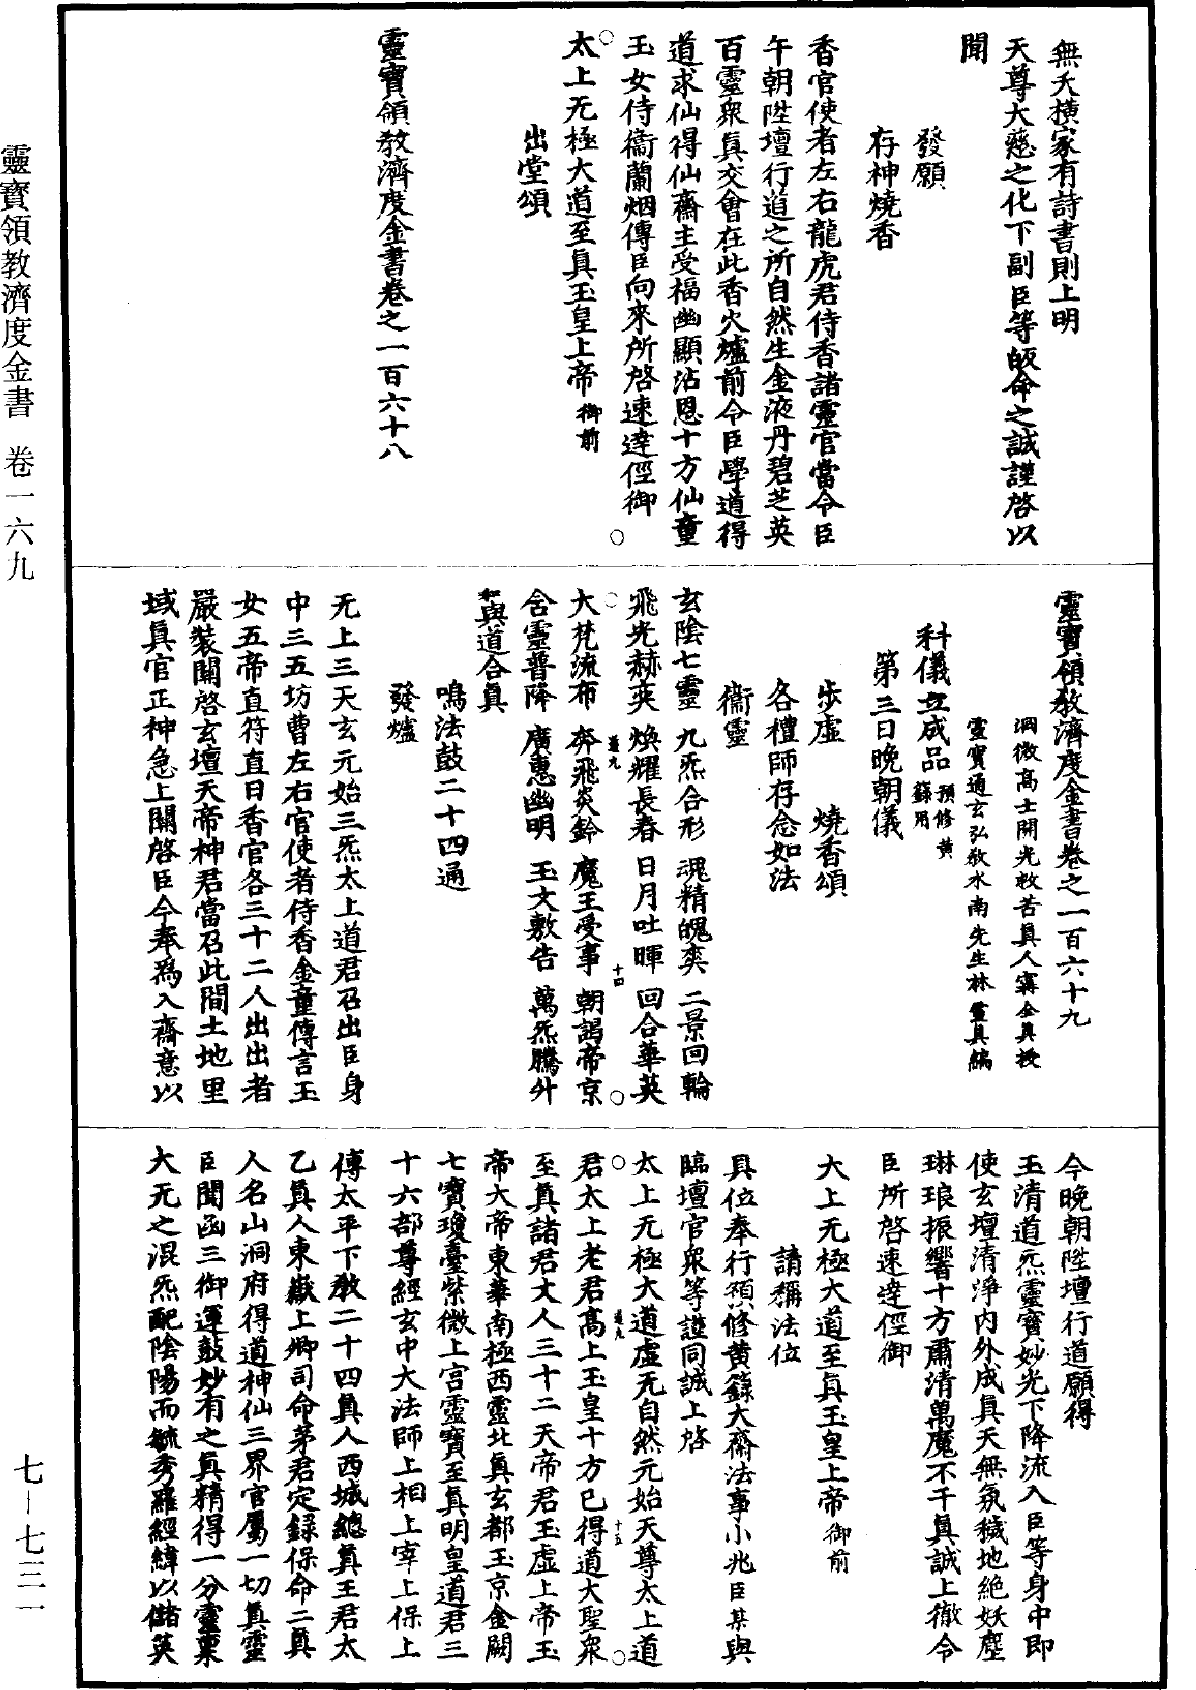 無夭横家有詩書則上明
天尊大慈之化下副臣等皈命之誠謹啓以
聞
發願
存神燒香
香官使者左右龍虎君侍香諸靈官當令臣
午朝陞壇行道之所自然生金液丹碧芝英
百靈衆眞交會在此香火爐前令臣學道得
道求仙得仙齋主受福幽顯沾恩十方仙童
玉女侍衞蘭烟傳臣向來所啓速達徑御
太上无極大道至眞玉皇上帝御前
出堂頌
靈寶領教濟度金書卷之一百六十八
靈寶領教濟度金書卷之一百六十九
洞微高士開光救苦眞人甯全眞授
靈寶通玄弘教水南先生林靈眞編
科儀立成品預修黄籙用
第三日晚朝儀
步虛 燒香頌
各禮師存念如法
衞靈
玄陰七靈 九炁合形 魂精魄奕 二景回輪
飛光赫奕 煥耀長春 日月吐暉 回合華英
大梵流布 奔飛炎鈴 魔王受事 朝謁帝京
含靈普降 廣惠幽明 玉文敷告 萬炁騰升
和與道合眞
鳴法鼓二十四通
發爐
无上三天玄元始三炁太上道君召出臣身
中三五坊曹左右官使者侍香金童傳言玉
女五帝直符直日香官各三十二人出出者
嚴装關啓玄壇天帝神君當召此間土地里
域眞官正神急上關啓臣今奉爲入齋意以
今晚朝陞壇行道願得
玉清道炁靈寶妙光下降流入臣等身中即
使玄壇清淨内外成眞天無氛穢地絕妖塵
琳琅振響十方肅清萬魔不干眞誠上徹令
臣所啓速達徑御
太上无極大道至眞玉皇上帝御前
請稱法位
具位奉行預修黄籙大齋法事小兆臣某與
臨壇官衆等謹同誠上啓
太上无極大道虛无自然元始天尊太上道
君太上老君高上玉皇十方已得道大聖衆
至眞諸君丈人三十二天帝君玉虛上帝玉
帝大帝東華南極西靈北眞玄都玉京金闕
七寶瓊臺紫微上宮靈寶至眞明皇道君三
十六部尊經玄中大法師上相上宰上保上
傅太平下教二十四眞人西城總眞王君太
乙眞人東嶽上卿司命茅君定録保命二眞
人名山洞府得道神仙三界官屬一切眞靈
臣聞函三御運鼓妙有之眞精得一分靈稟
大无之混炁配陰陽而毓秀羅經緯以儲英
靈寶領教濟度金書 卷一六九
七—七三一